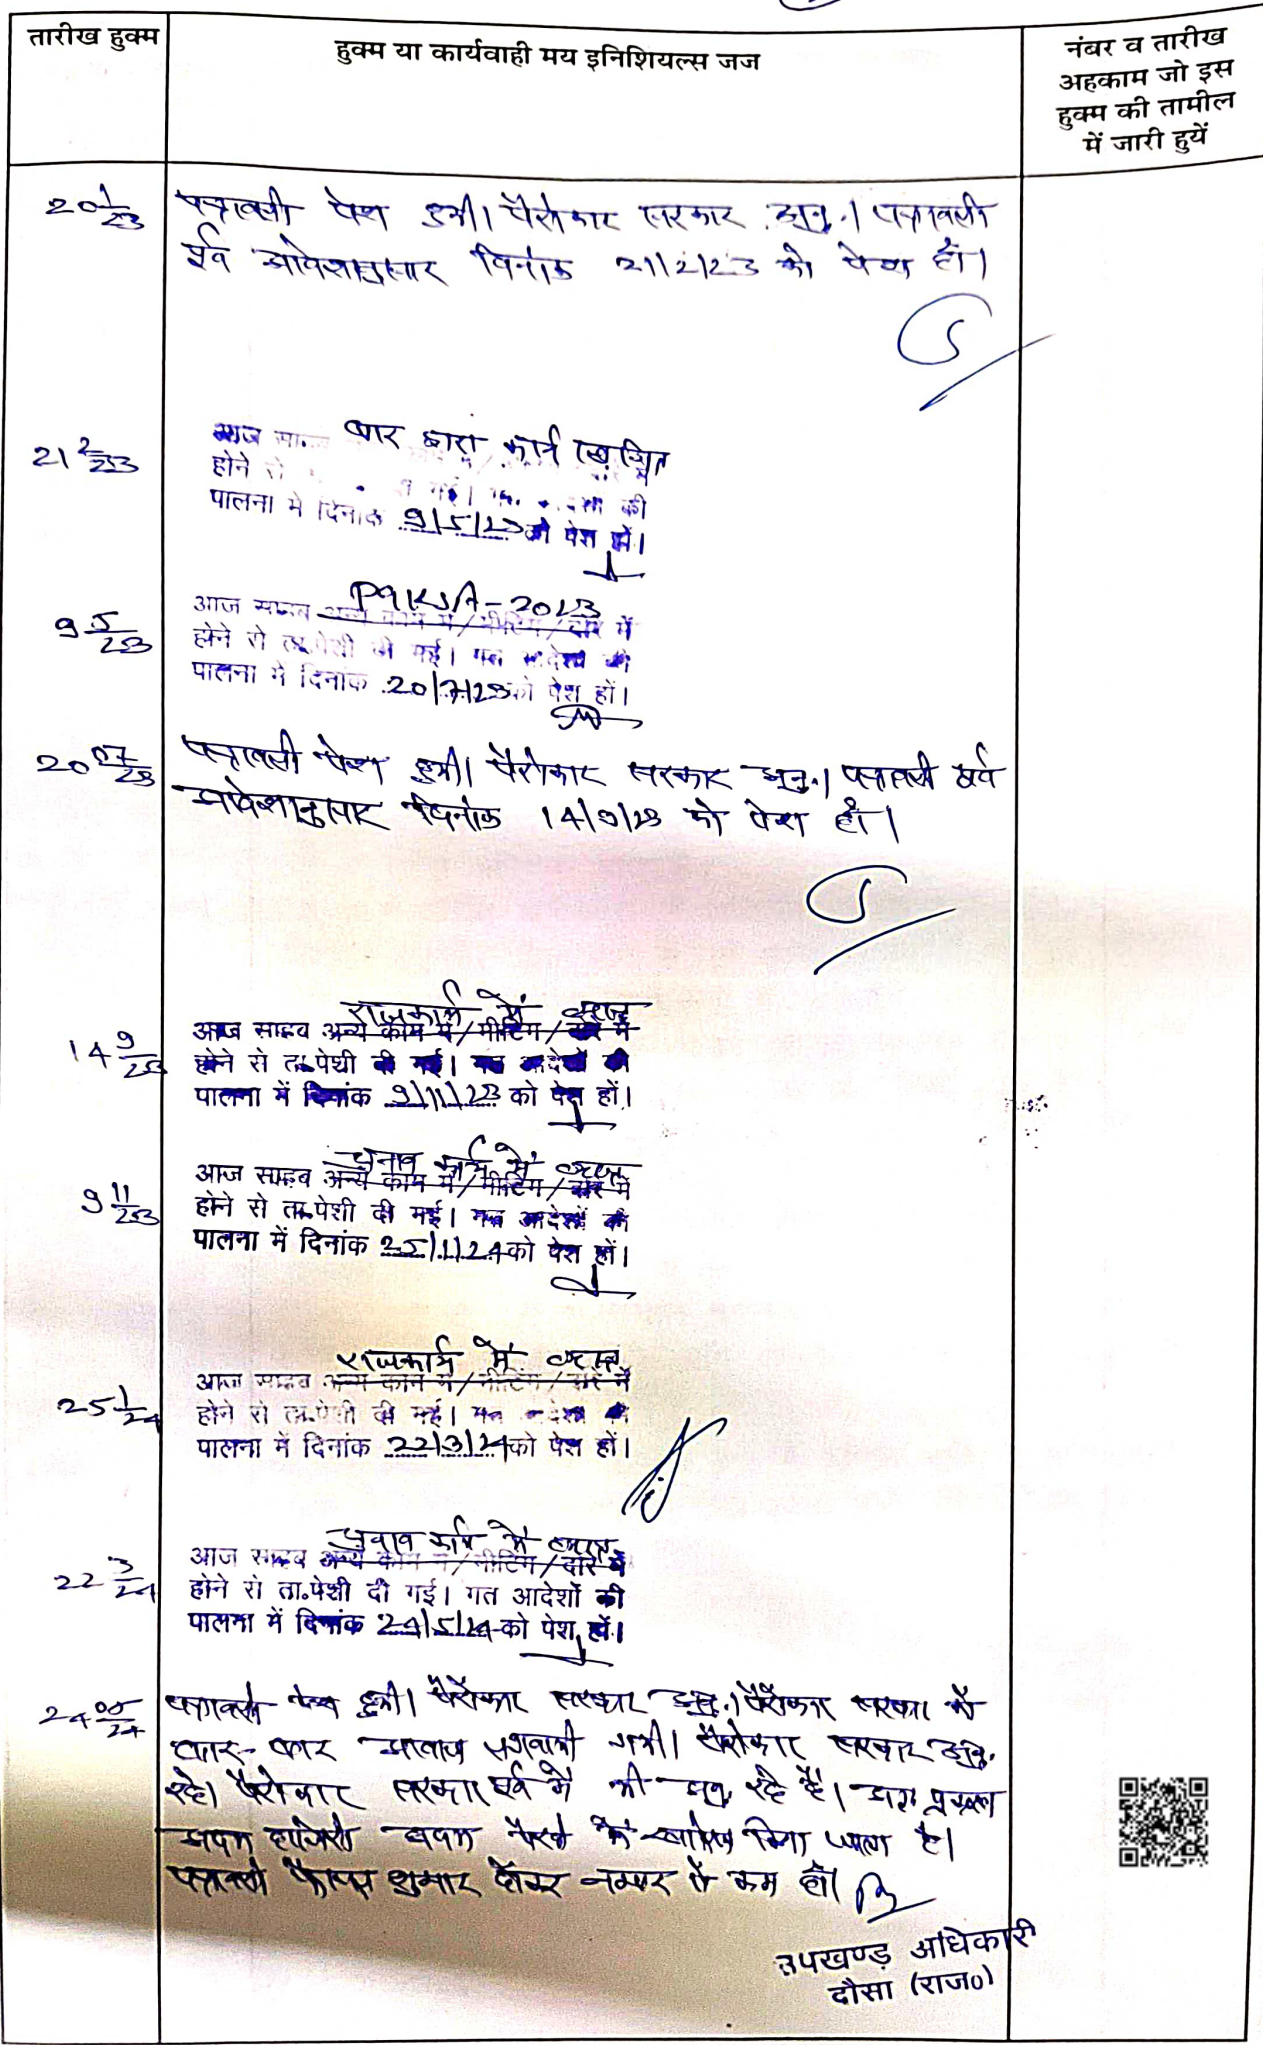 तारीख हुक्म
हुक्म या कार्यवाही मय इनिशियल्स जज
नंबर व तारीख
अहकाम जो इस
हुक्म की तामील
में जारी हुयें
20 1/23
पत्रावली पेश हुयी। पैरोकार सरकार अनु.। पत्रावली
पूर्व आदेशानुसार दिनांक 21/2/23 को पेश हो।
21 2/23
बार द्वारा कार्य स्थगित
आज
होने से गई। की
पालना में दिनांक 9/5/23 को पेश हों।
9 5/23
2023
आज साहब अन्य काम में/मीटिंग/दौरे में
होने से ता.पेशी दी गई। गत आदेशों की
पालना में दिनांक 20/7/23 को पेश हों।
20 07/23
पत्रावली पेश हुयी। पैरोकार सरकार अनु.। पत्रावली पूर्व
आदेशानुसार दिनांक 14/9/23 को पेश हो।
राजकार्य में व्यस्त
14 9/23
आज साहब अन्य काम में/मीटिंग/दौरे में
होने से ता.पेशी दी गई। गत आदेशों की
पालना में दिनांक 9/11/23 को पेश हों।
चुनाव कार्य में व्यस्त
9 11/23
आज साहब अन्य काम में/मीटिंग/दौरे में
होने से ता.पेशी दी गई। गत आदेशों की
पालना में दिनांक 25/1/24 को पेश हों।
राजकार्य में व्यस्त
25 1/24
आज साहब अन्य काम में/मीटिंग/दौरे में
होने से ता.पेशी दी गई। गत आदेशों की
पालना में दिनांक 22/3/24 को पेश हों।
चुनाव कार्य में व्यस्त
22 3/24
आज साहब अन्य काम में/मीटिंग/दौरे में
होने से ता.पेशी दी गई। गत आदेशों की
पालना में दिनांक 24/5/24 को पेश हों।
24 05/24
पत्रावली पेश हुयी। पैरोकार सरकार अनु.। पैरोकार सरकार को
बार-बार आवाज लगवायी गयी। पैरोकार सरकार अनु.
रहे। पैरोकार सरकार पूर्व में भी अनु. रहे है। अतः प्रकरण
अदम हाजिरी अदम पैरवी में खारिज किया जाता है।
पत्रावली फैसल शुमार होकर नम्बर से कम हो।
उपखण्ड अधिकारी
दौसा (राज०)